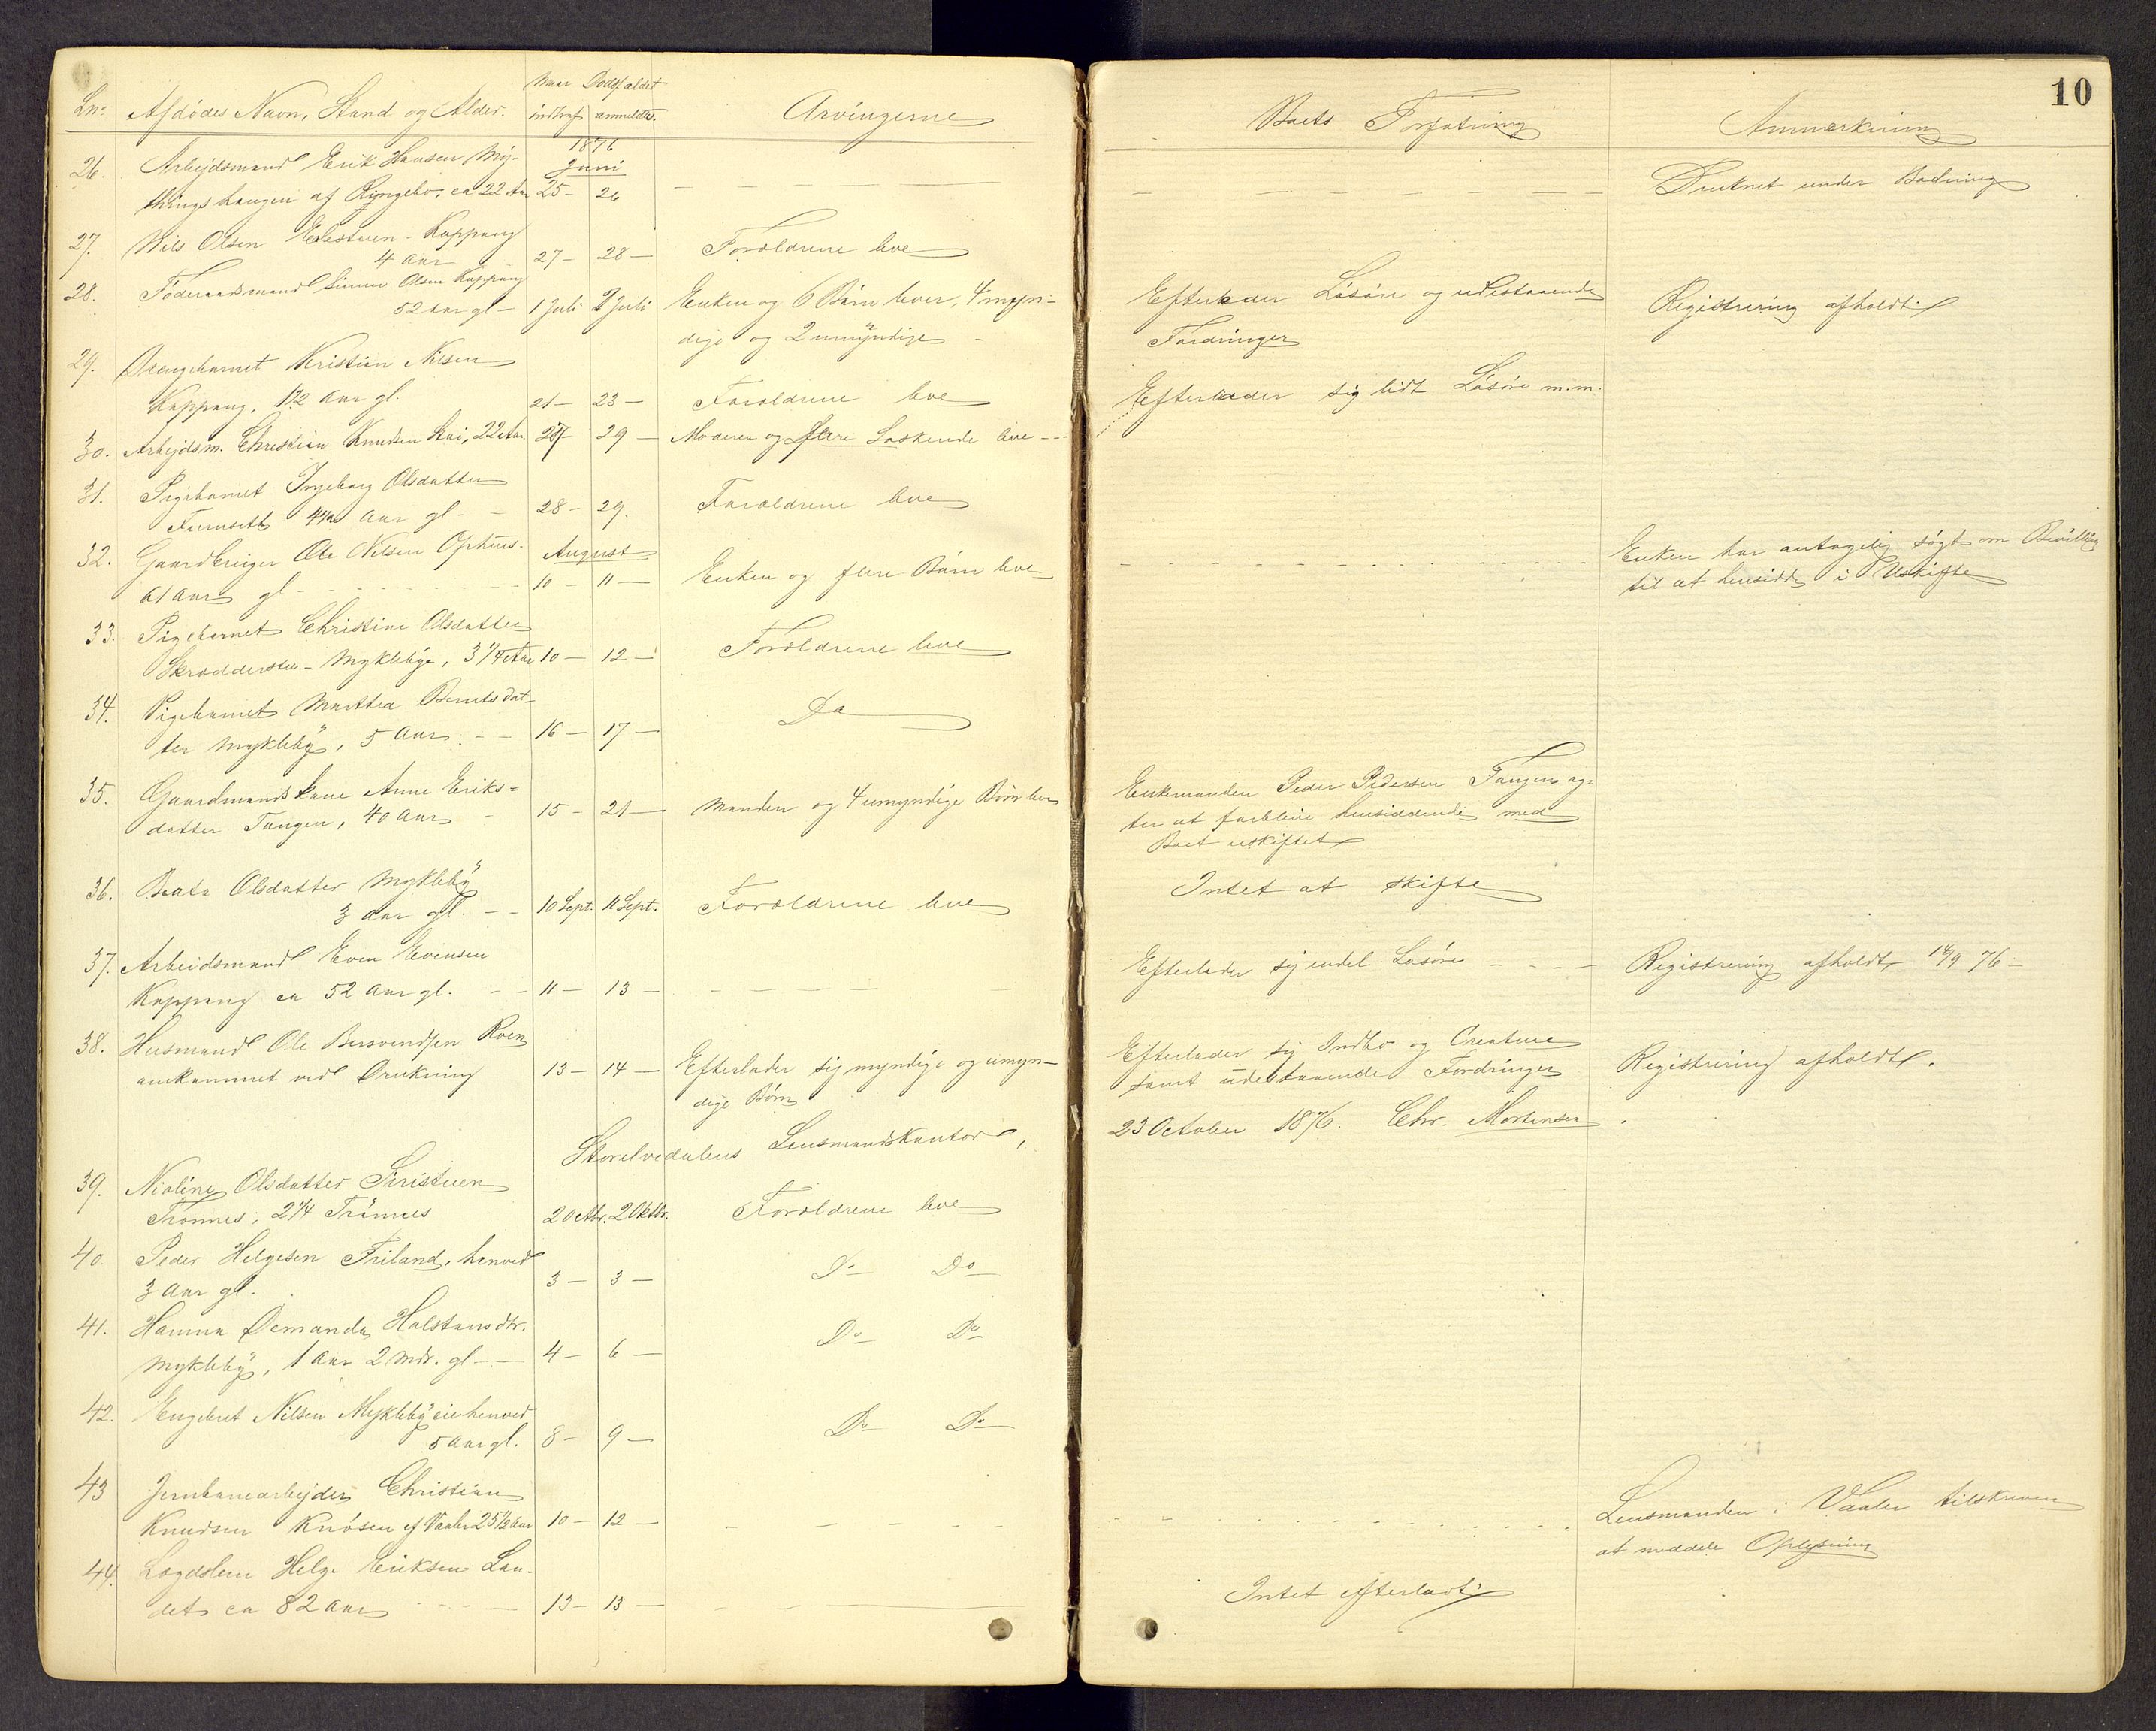 10
Naar Dødsfaldet
Lnr. Afdødes Navn, Stand og Alder. indtraf anmeldtes. Arvingerne Boets Forfatning Anmærkning
1876
Juni
26. Arbejdsmand Erik Hansen Møj-
thingshaugen af Ringebo, ca 22 Aar 25 - 26 Druknet under Badning
27. Nils Olsen Koppang
4 Aar 27 - 28 - Forældrene leve
28. Føderaadsmand Simen Olsen Koppang
52 Aar gl - 1 Juli 2 Juli Enken og 6 Børn lever, 4 myn-
dige og 2 umyndige
Efterlader Løsøre og udestaaende
Fordringer
Registrering afholdt
29. Drengebarnet Kristian Nilsen
Koppang, 1 1/2 Aar gl. 21 - 23 - Forældrene leve
Efterlader sig lidt Løsøre m.m.
30. Arbejdsm. Christian Knudsen Stai, 22 Aar 28 - 29 - Moderen og flere Søskende leve
31. Pigebarnet Ingeborg Olsdatter
Furusett 4 1/2 Aar gl - 28 - 29. Forældrene leve
August
32. Gaardbruger Ole Nilsen Ophus
61 Aar gl 10 - 11 - Enken og flere Børn leve
Enken har antagelig søgt om Bevilling
til at hensidde i Uskifte
33. Pigebarnet Christine Olsdatter
Skrædderstu - Mykleby, 3 1/4 Aar 10 - 12 - Forældrene leve
34. Pigebarnet Marthea Berntsdat-
ter Mykleby, 5 Aar 16 - 17 - Do
35. Gaardmandskone Anne Eriks-
datter Tangen, 40 Aar 15 - 21 - Manden og 4 umyndige Børn leve
Enkemanden Peder Pedersen Tangen ag-
ter at forblive hensiddende med
Boet uskiftet
36. Beata Olsdatter Mykleby
3 Aar gl. - 10 Sept. 11 Sept. Forældrene leve
Intet at skifte
37. Arbeidsmand Even Evensen
Koppang ca 52 Aar gl. - 11 - 13 -
Efterlader sig endel Løsøre Registrering afholdt 14/9 76 -
38. Husmand Ole Bersvendsen Roen
omkommet ved Drukning 13 - 14 - Efterlader sig myndige og umyn-
dige Børn
Efterlader sig Indbo og Creature
samt udestaaende Fordringer
Registrering afholdt.
Storelvedalens Lensmandskontor, 23 October 1876. Chr. Mortensen
39. Nioline Olsdatter Siristuen
Trønnes, 2 1/4 Trønnes 2 Octbr. 2 Oktbr. Forældrene leve
40. Peder Helgesen Friland, henved
3 Aar gl. 3 - 3 - Do Do
41. Hanna Demanda Halstensdtr.
Mykleby, 1 Aar 2 Mdr. gl - 4 - 6 - Do Do
42. Engebret Nilsen Myklebyeie henved
5 Aar gl. 8 - 9 - Do Do
43 Jernbanearbejder Christian
Knudsen Knøsen af Vaaler 25 1/2 Aar 10 - 12 -
Lensmanden i Vaaler tilskreven
at meddele Oplysning
44. Lægdslem Helge Eriksen Lan-
det ca 82 Aar 13 - 13 - Intet efterladt